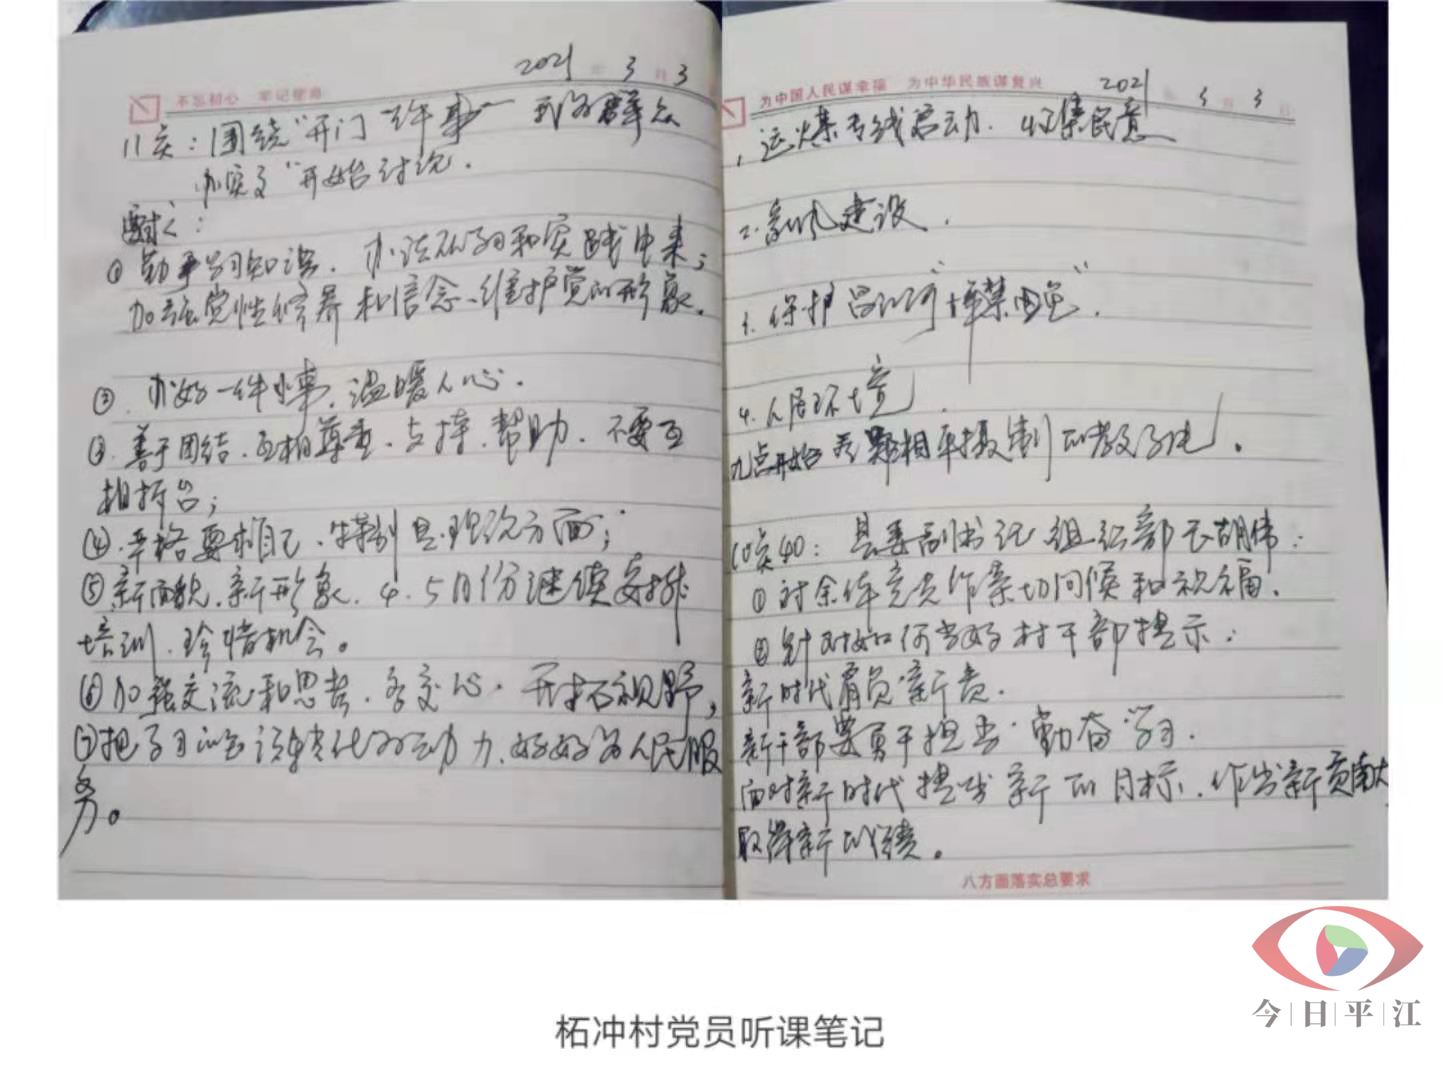 不忘初心 牢记使命
2021年3月3
11点：围绕"开门一件事 我为群众
办实事"开始讨论。
要求：
① 勤学习知识、办法从学习和实践中来；
加强党性修养和信念、维护党的形象。
②、办好一件小事、温暖人心。
③、善于团结、互相尊重、支持、帮助、不要互
相拆台；
④、严格要求自己、特别是理论方面；
⑤、新面貌、新形象、4、5月份继续安排
培训、珍惜机会。
⑥ 加强交流和思考、多交心、开拓视野，
⑦ 把学习的知识转化为动力、好好为人民服
务。
为中国人民谋幸福 为中华民族谋复兴
2021年3月3日
1、运煤专线启动、收集民意
2、家风建设、
3、保护昌江河"禁
4、人居环境、
九点开始 摄制的教学片。
10点40：县委副书记 组织部长胡伟：
① 对全体党员作亲切问候和祝福。
② 针对如何当好村干部提示：
新时代肩负新责、
新干部要勇于担当 勤奋学习、
面对新时代提出新的目标、作出新贡献
取得新的成绩。
八方面落实总要求
今日平江
柘冲村党员听课笔记